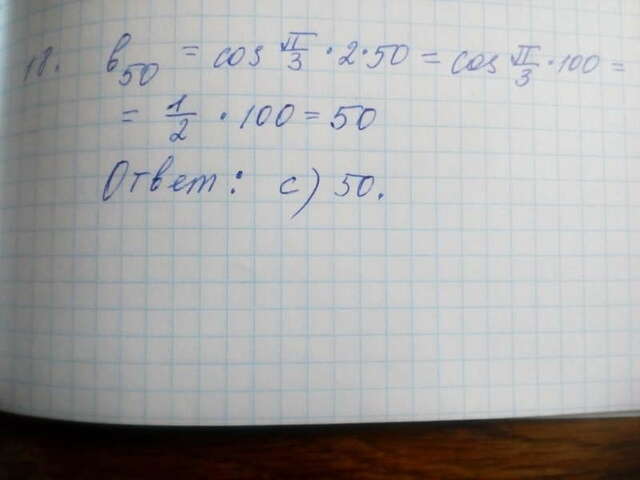 18. b₅₀ = cos π/3 · 2 · 50 = cos π/3 · 100 =
= 1/2 · 100 = 50
Ответ: с) 50.